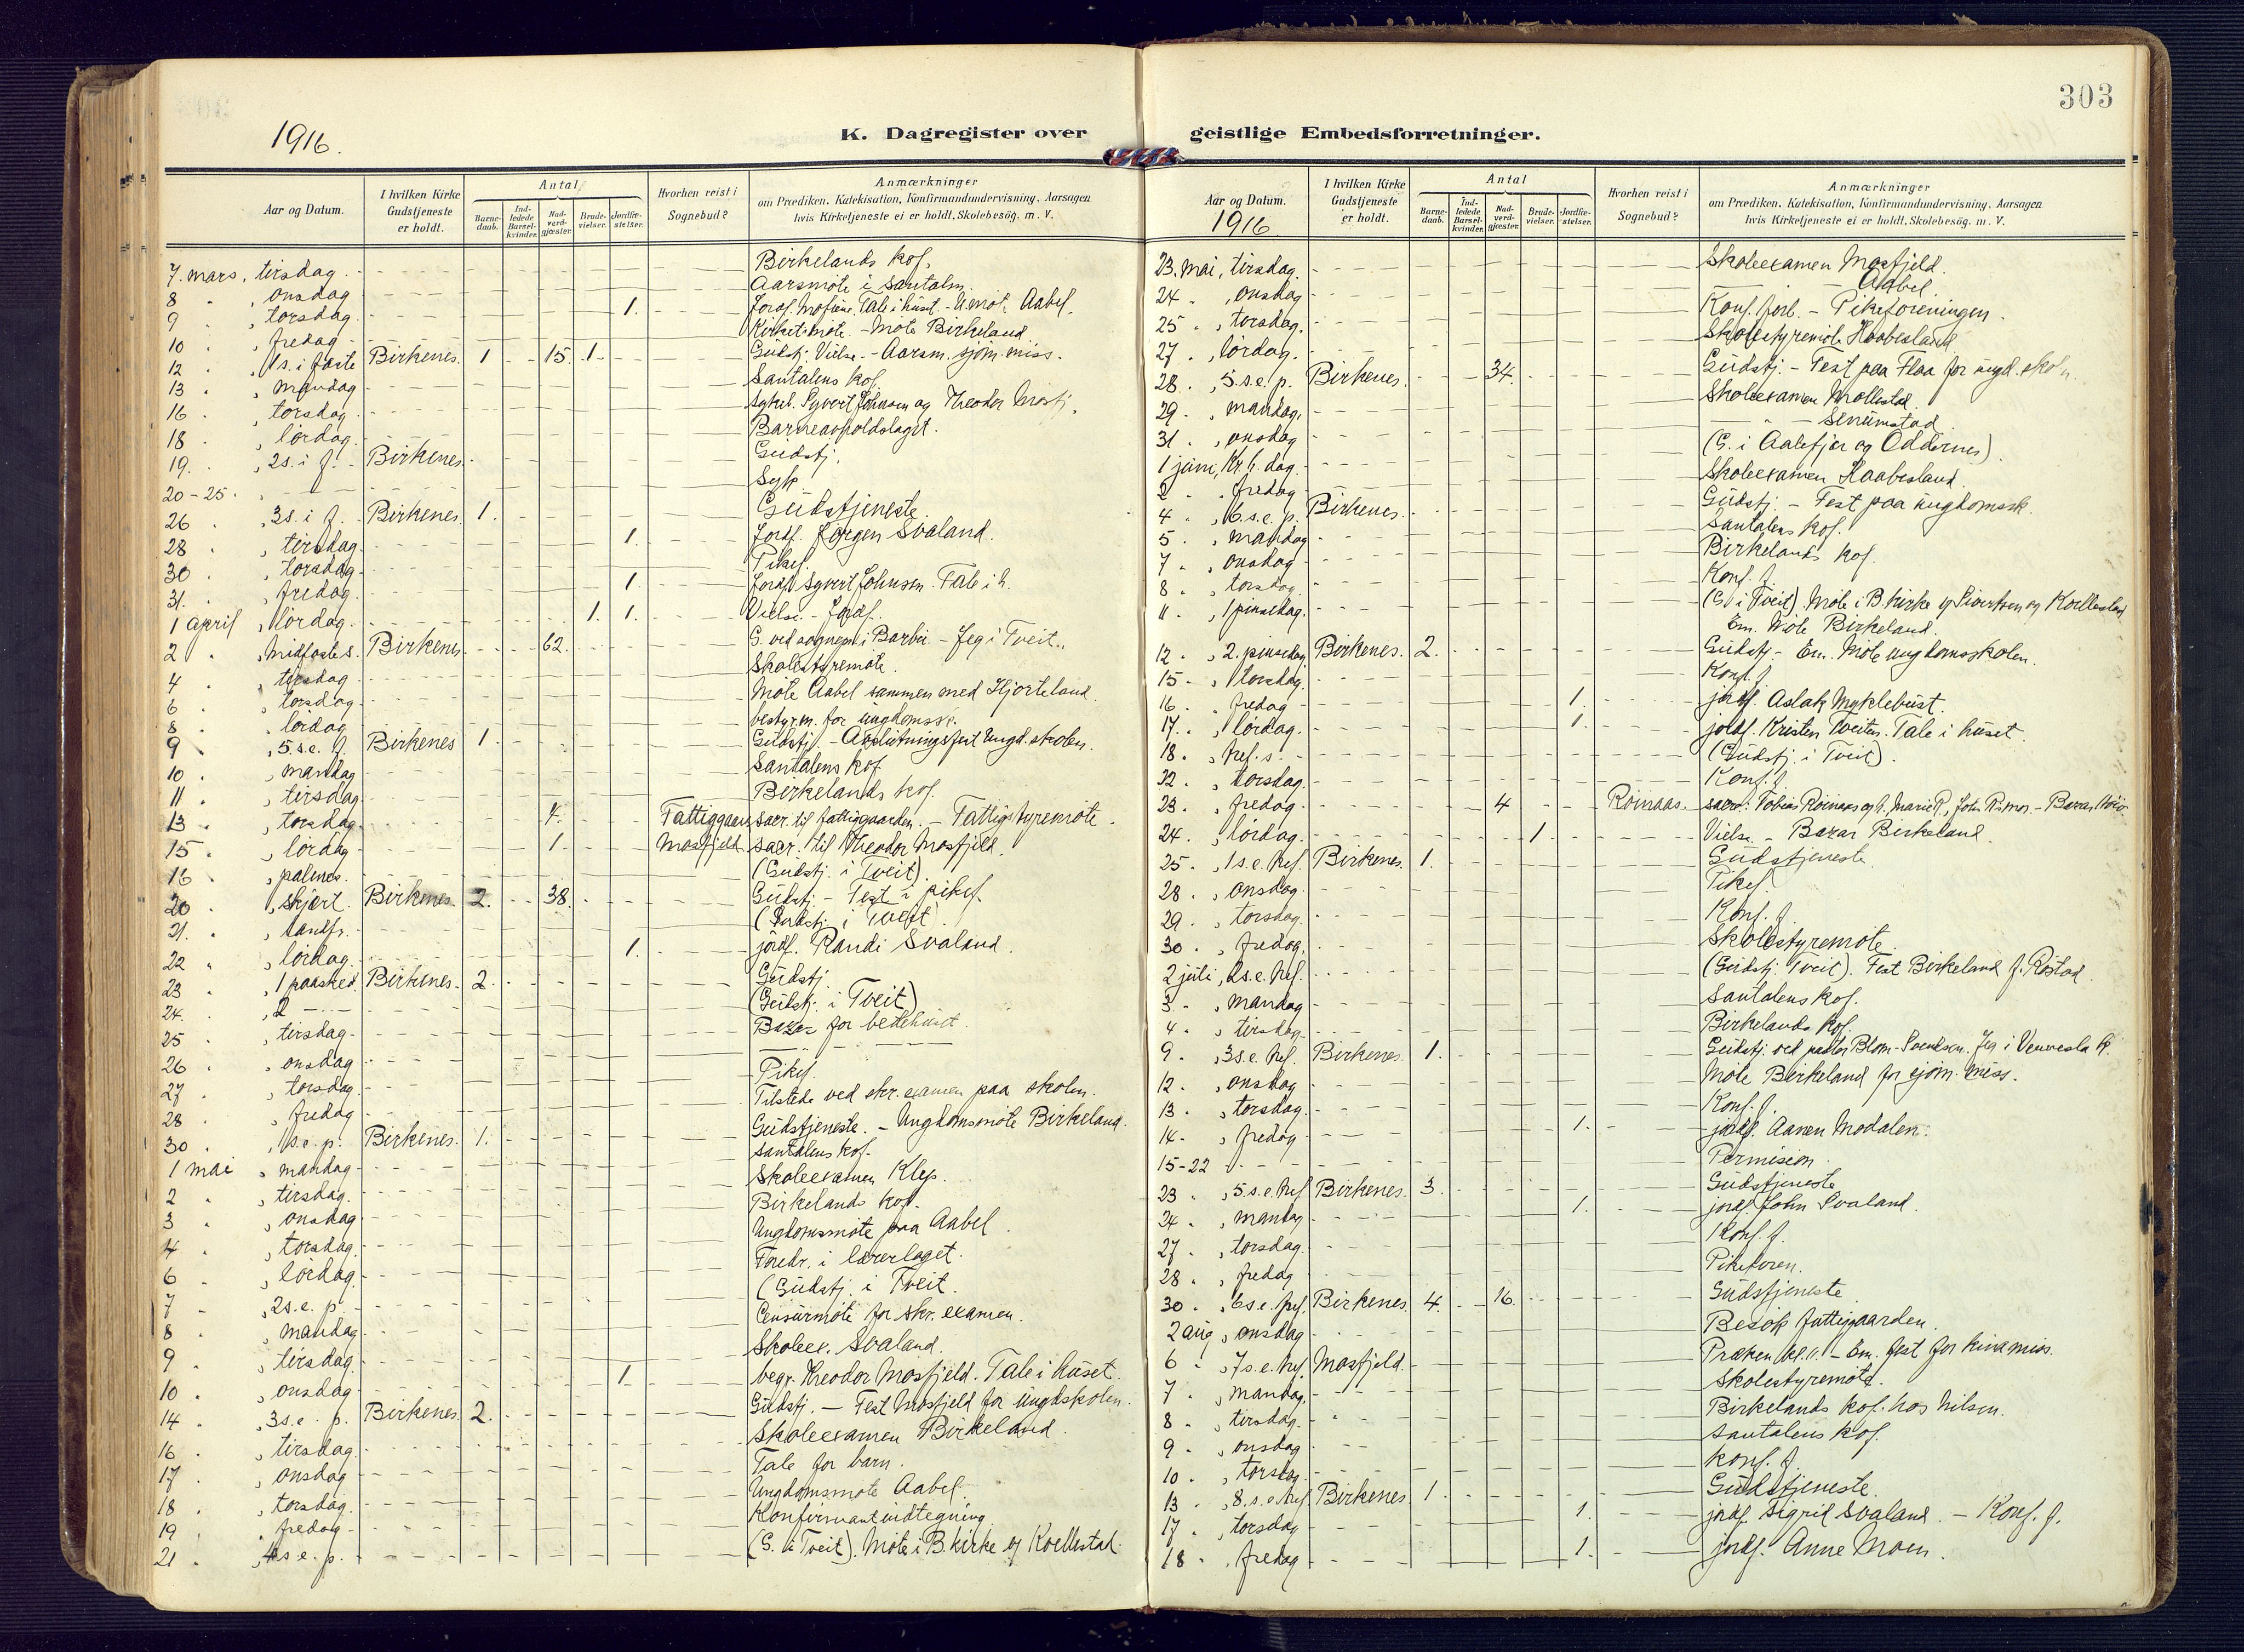 303
1916.
K. Dagregister over geistlige Embedsforretninger.
Aar og Datum.
I hvilken Kirke Gudstjeneste er holdt.
Antal
Barnedaab.
Indledede Barselkvinder.
Nadverdgjæster.
Brudevielser.
Jordfæstelser.
Hvorhen reist i Sognebud?
Anmærkninger
om Prædiken, Katekisation, Konfirmandundervisning, Aarsagen
hvis Kirketjeneste ei er holdt, Skolebesøg, m. V.
7. mars, tirsdag. Birkelands kof.
8 " , onsdag Aarsmøte i Santalm.
9 , torsdag. 1. Jordf. Tale i huset. - Aabel.
10 . , fredag - møte Birkeland
12 . , 1 s. i faste Birkenes. 1 15. 1. Gudstj. Vielse. - Aarsm. sjøm. miss.
13 . , mandag Santalens kof.
16 . , torsdag. Sykeb. Syvert Johnsen og Theodor Mosfj.
18 . , lørdag. Barneavholdslaget.
19. . , 2 s. i f. Birkenes. Gudstj.
20-25. Syk.
26 . , 3 s. i f. Birkenes. 1. Gudstjeneste.
28 . , tirsdag. 1. Jordf. Jørgen Svaland.
30 . , torsdag. Pikef.
31. . , fredag. 1. Jordf. Syvert Johnsen. Tale i h.
1 april , lørdag. 1. 1. Vielse - Jordf.
2 . , Midfastes. Birkenes 62. G. ved sognepr. i Barbu - Jeg i Tveit.
4 . , tirsdag Skolestyremøte.
6 . , torsdag Møte Aabel sammen med Hjorteland.
8 . , lørdag bestyr. m. for ungdomssk.
9 , 5. s.e. f. Birkenes 1. Gudstj. - Avslutningsfest Ungd. skolen.
10 . , mandag Santalens kof
11 . , tirsdag Birkelands kof.
13 . , torsdag 4. Fattiggaard sacr. til fattiggaarden. - Fattigstyremøte.
15 . , lørdag 1. Mosfjeld sacr. til Theodor Mosfjeld.
16 . , palmes. (Gudstj. i Tveit).
20 , skjært. Birkenes. 2. 38. Gudstj. - Fest i pikef.
21. . , Langfr. (Gudstj. i Tveit
22 . , lørdag. 1. jordf. Randi Svaland.
23 . , 1 paasked. Birkenes. 2. Gudstj
24. . , 2 - (Gudstj. i Tveit)
25 . , tirsdag. Bazar for bedehuset.
26 . , onsdag
27 . , torsdag Pikef.
28 . , fredag Tilstede ved skr. examen paa skolen.
30 . , 1 s.e. p. Birkenes. 1. Gudstjeneste. - Ungdomsmøte Birkeland.
1 mai , mandag Santalens kof.
2 . , tirsdag. Skoleexamen Klep.
3 . , onsdag Birkelands kof.
4 . , torsdag. Ungdomsmøte paa Aabel.
6 . , lørdag. Foredr. i lærerlaget.
7 - , 2 s. e. p. (Gudstj. i Tveit.
8 . , mandag. Censurmøte for skr. examen.
9 . , tirsdag Skoleex. Svaland.
10 . , onsdag 1. begr. Theodor Mosfjeld. Tale i huset.
14 . , 3 s. e. p. Birkenes. 2. Gudstj. - Fest Mosfjeld for ungdskolen.
16 . , tirsdag. Skoleexamen Birkeland.
17 . , onsdag Tale for barn.
18 . , torsdag. Ungdomsmøte Aabel.
19 . , fredag Konfirmantindtegning.
21 . , 4 s e. p. (G. i Tveit). Møte i B. kirke og Kvellestad.
Aar og Datum.
1916.
I hvilken Kirke Gudstjeneste er holdt.
Antal
Barnedaab.
Indledede Barselkvinder.
Nadverdgjæster.
Brudevielser.
Jordfæstelser.
Hvorhen reist i Sognebud?
Anmærkninger
om Prædiken, Katekisation, Konfirmandundervisning, Aarsagen
hvis Kirketjeneste ei er holdt, Skolebesøg, m. V.
23. mai, tirsdag. Skoleexamen Mosfjeld.
24 . , onsdag - Aabel.
25 . , torsdag. Konf. forb. - Pikeforeningen.
27 . , lørdag. Skolestyremøte Haabesland
28 . , 5. s. e. p. Birkenes. 34. Gudstj. - Fest paa Flaa for ungd. skol
29 . , mandag. Skoleexamen Mollestad.
31 . , onsdag - " - Senumstad
1 juni, Kr. h. dag. (G. i Aalefjær og Oddernes).
2 . , fredag Skoleexamen Haabesland.
4 . , 6. s. e. p. Birkenes. Gudstj. - Fest paa ungdomssk.
5 . , mandag Santalens kof.
7 . , onsdag Birkelands kof.
8 . , torsdag. Konf. f.
11 . , 1 pinsedag. (G. i Tveit). Møte i B. kirke og Kvellestad
Em. Møte Birkeland.
12 . , 2. pinsedag Birkenes. 2. Gudstj - Em. Møte ungdomsskolen.
15 - , torsdag. Konf. f.
16 . , fredag - 1. jordf. Aslak Myklebust.
17. , lørdag. 1. jordf. Kristen Tveiten. Tale i huset.
18 . , tref. s. (Gudstj. i Tveit).
22 . , torsdag. Konf. f.
23 . , fredag. 4 Røinaas. sacr. Tobias Røinaas og h. Marie R., John R's mor. - Bazar
24. , lørdag. 1. Vielse - Bazar Birkeland.
25. , 1 s. e. tref. Birkenes. 1. Gudstjeneste.
28 . , onsdag. Pikef.
29 . , torsdag. Konf. f.
30 . , fredag. Skolestyremøte.
2 juli, 2 s. e. tref. (Gudstj. Tveit). Fest Birkeland f. Røstad.
3 - , mandag Santalens kof.
4 . , tirsdag Birkelands kof.
9 . , 3 s. e. tref. Birkenes. 1. Gudstj. ved pastor Blom-Svendsen. Jeg i Vennesla k.
12. , onsdag Møte Birkeland for sjøm. miss.
13 . , torsdag. Konf. f.
14. , fredag 1. jordf. Aanen Modalen.
15-22 Permision
23 . , 5. s. e. tref Birkenes. 3. Gudstjeneste
24 . , mandag 1. jordf. John Svaland.
27 . , torsdag. Konf. f.
28 . , fredag Pikeforen.
30 . , 6 s. e. tref. Birkenes. 4. 16. Gudstjeneste
2 aug , onsdag Besøk fattiggaarden.
6 . , 7 s. e. tref. Mosfjeld. Præken - Em. fest for kinamis.
7 . , mandag. Skolestyremøte.
8 . , tirsdag. Birkelands kof. hos Nilsen.
9 . , onsdag Santalens kof.
10 . , torsdag. konf. f.
13 . , 8. s. e. tref. Birkenes. 1. Gudstjeneste.
17 . , torsdag 1. jordf. Sigrid Svaland. - Konf. f.
18 . , fredag 1. jordf. Anne Moen.